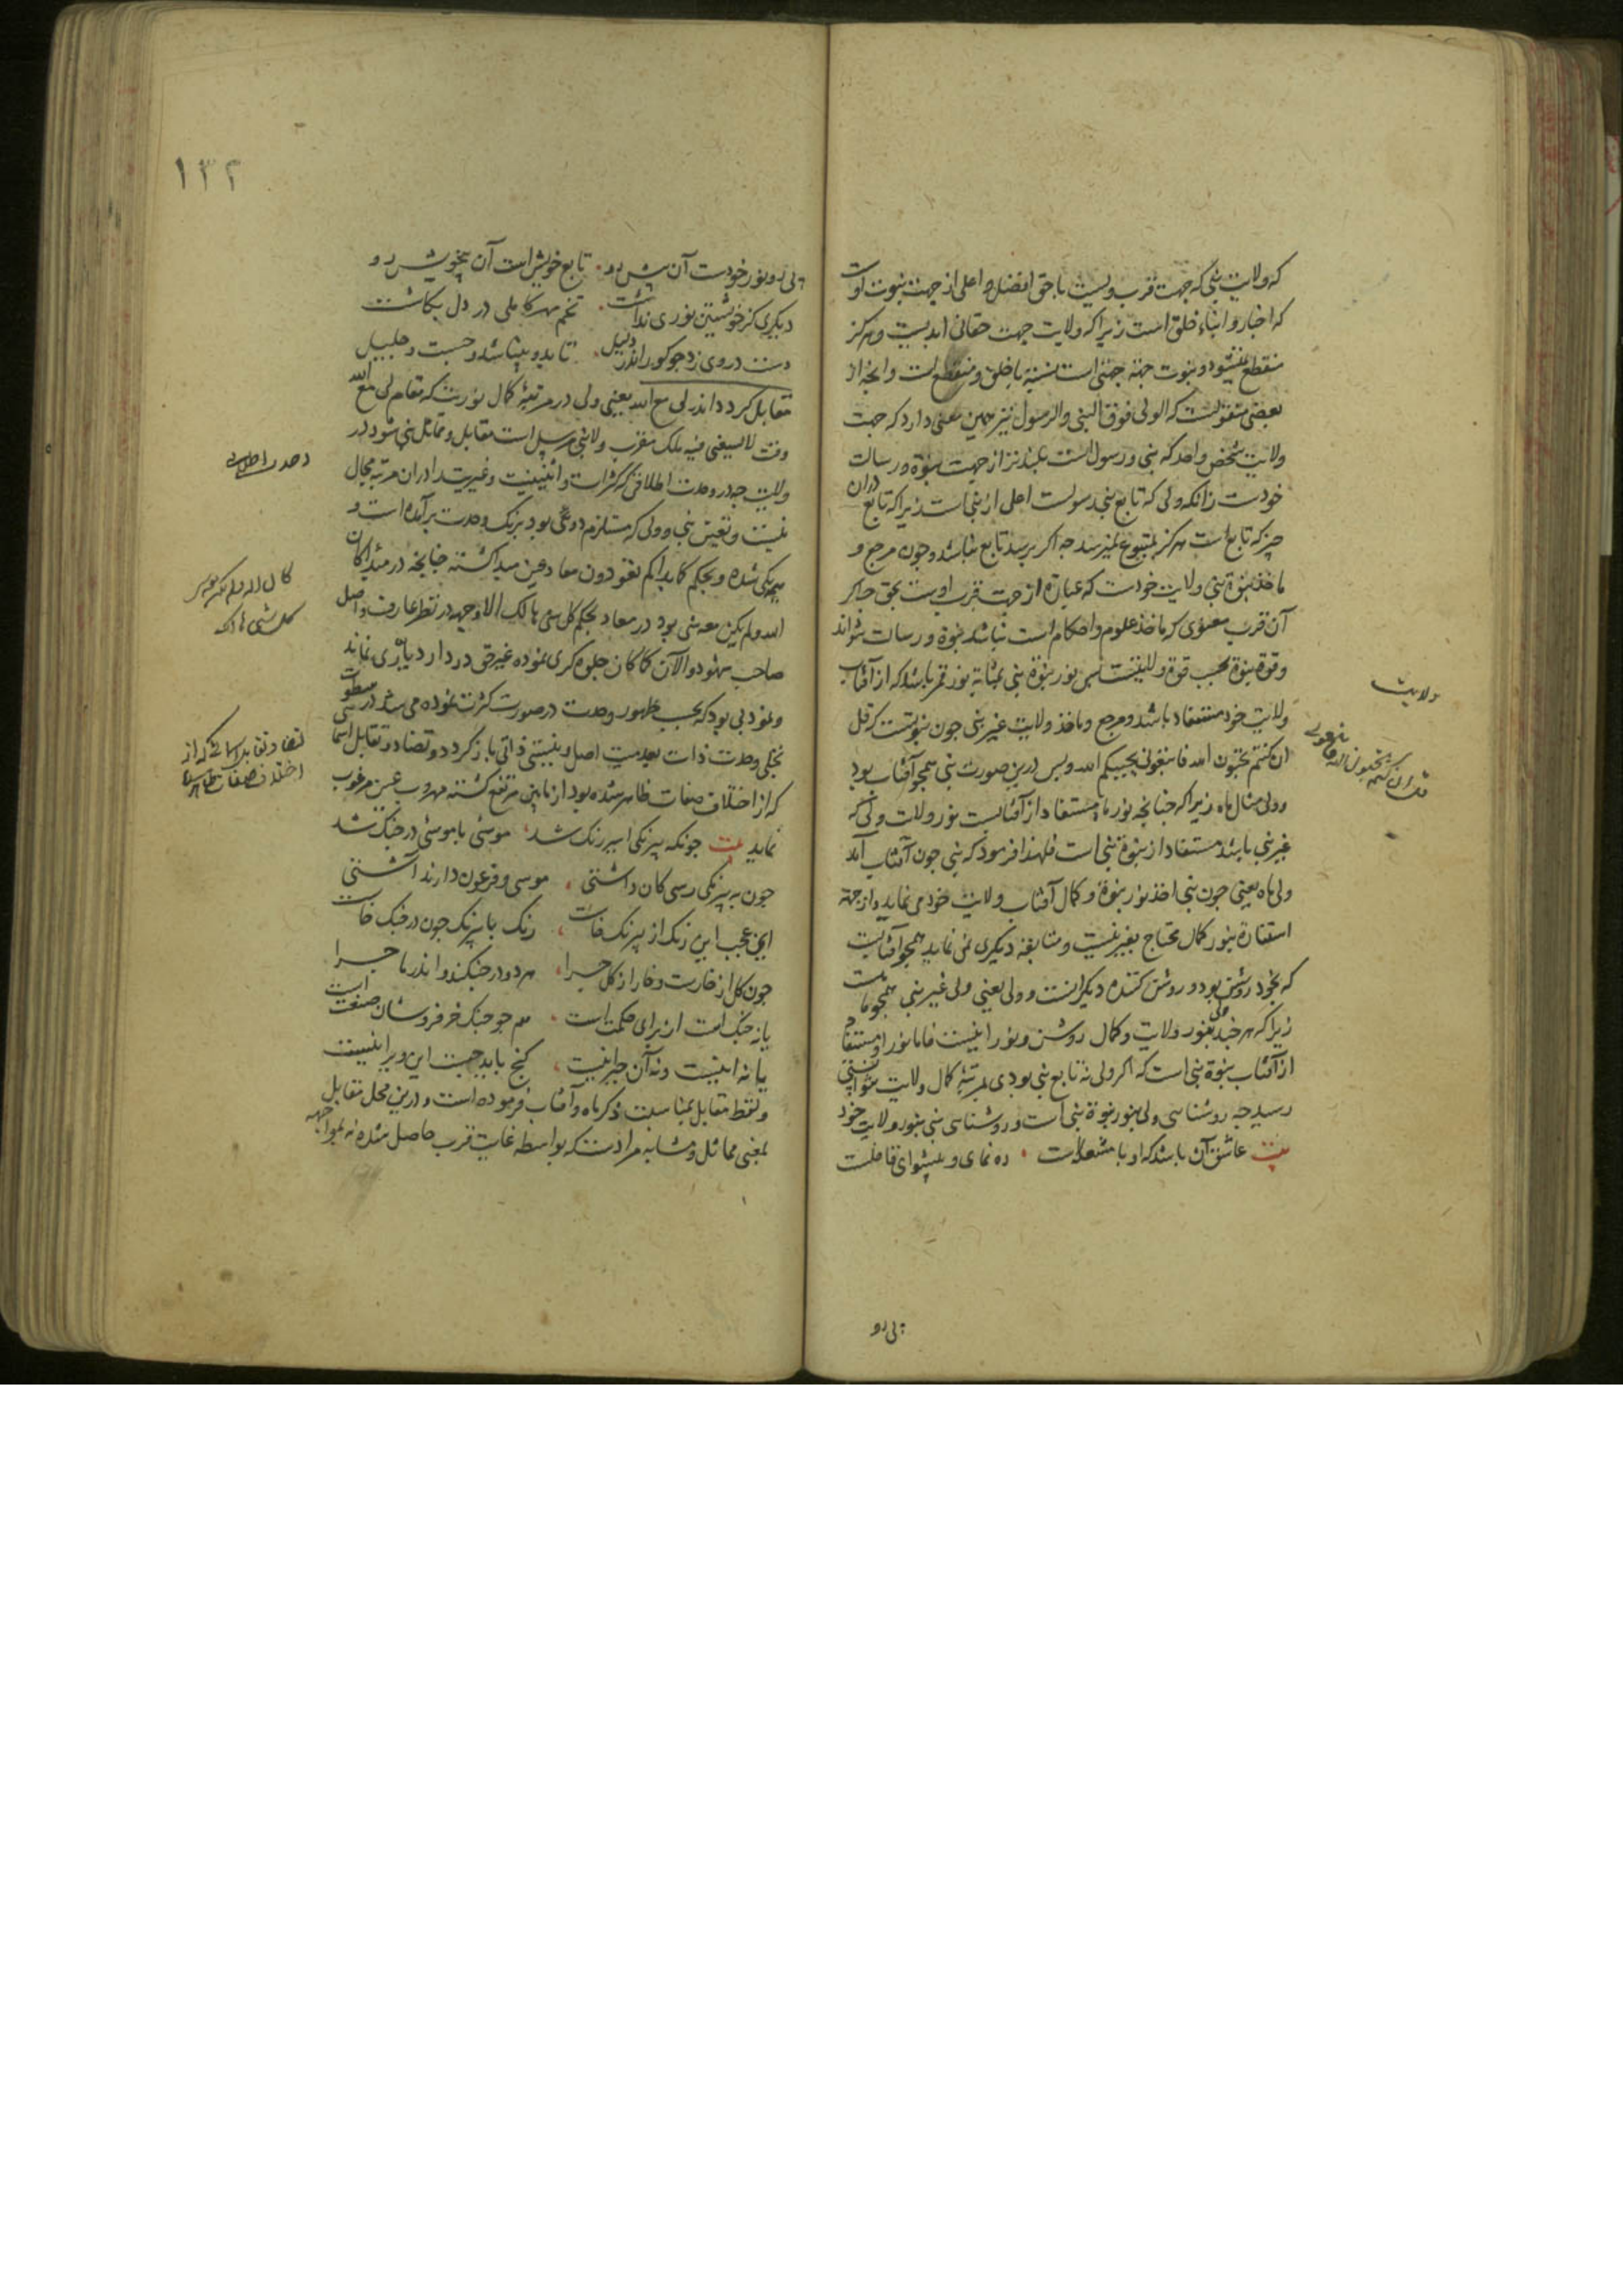 که ولایت نبی که جهت قرب ویست با حق افضل و اعلی از جهت نبوت اوست
که اخبار و انباء خلق است زیرا که ولایت جهت حقانی ابدیست و هرکز
منقطع نمیشود و نبوت جهتی است نسبة با خلق و منقطع است و انجه از
بعضی منقولست که الولی فوق النبی والرسول نیز همین معنی دارد که جهت
ولایت شخص واحد که نبی و رسول است بلندتر از جهت نبوة و رسالت
خودست زانکه ولی که تابع نبی و رسولست اعلی از نبی است زیرا که تابع دران
چیز که تابع است هرکز بمتبوع نمیرسد جه اکر برسد تابع نباشد و جون مرجع و
ماخذ نبوة نبی ولایت خودست که عبارة از جهت قرب اویست بحق جه اکر
آن قرب معنوی که ماخذ علوم و احکام است نباشد نبوة و رسالت نتواند
و قوة نبوة بحسب قوة ولایتست پس نور نبوة نبی بمثابه نور قمر باشد که از آفتاب
ولایت خود مستفاد باشد و مرجع و ماخذ ولایت غیر نبی جون نبوتست که قل
ان کنتم تحبون الله فاتبعونی یحببکم الله و بس درین صورت نبی همجو آفتاب بود
و ولی مثال ماه زیرا که جنانجه نور ماه مستفاد از آفتابست نور ولایت ولی که
غیر نبی باشد مستفاد از نبوة نبی است فلهذا فرمود که نبی جون آفتاب آمد
ولی ماه یعنی جون نبی اخذ نور نبوة و کمال آفتاب ولایت خود می نماید و از جهة
استفاده نور کمال محتاج بغیر نیست و متابعة دیکری نمی نماید همجو آفتابست
که بخود روشن بود و روشن کننده دیکرانست و ولی یعنی ولی غیر نبی همجو ماهست
زیرا که هر جند ولی بنور ولایت و کمال روشن و نورانیست فاما نور او مستفاد
از آفتاب نبوة نبی است که اکر ولی نه تابع نبی بودی بمرتبه کمال ولایت نتوانستی
رسید جه روشناسی ولی بنور نبوة نبی است و روشناسی نبی بنور ولایت خود
بیت عاشق آن باشد که او با مشعله است ٠ ره نمای و پیشوای قافله است
پی رو
ولایت
قل ان کنتم تحبون الله فاتبعونی
۱۳۲
پی رو نور خودست آن پیش رو ٠ تابع خویش است آن بیخویش رو
دیکری کز خویشتن نوری نداشت ٠ تخم مهر کاملی در دل بکاشت
دست در وی زد جو کور اندر دلیل ٠ تا بدو بینا شد و جست و جلیل
مقابل کردد اندر لی مع الله یعنی ولی در مرتبه کمال نوریت که مقام لی مع الله
وقت لا یسعنی فیه ملک مقرب و لا نبی مرسل است مقابل و مماثل نبی شود در
ولایت جه در وحدت اطلاقی که کثرات و اثنینیت و غیریت را دران مرتبه مجال
نیست و تعین نبی و ولی که مستلزم دوئی بود برنک وحدت برآمده است و
همه یکی شده و بحکم کما بداکم تعودون معاد عین مبدا کشته جنانجه در مبدا کان
الله و لم یکن معه شی بود در معاد بحکم کل شی هالک الا وجهه در نظر عارف واصل
صاحب شهود و الآن کما کان جلوه کری نموده غیر حق در دار دیاری نماند
و نمود بی بود که بحسب ظهور وحدت در صورت کثرت نموده می شد در سطوت
تجلی وحدت ذات بعدمیت اصل و نیستی ذاتی باز کردد و تضاد و تقابل اسمائی
که از اختلاف صفات ظاهر شده بود از مابین مرتفع کشته مهروب عین مرغوب
نماید بیت جونکه بیرنکی اسیر رنک شد ٠ موسئی با موسئی در جنک شد
جون به بیرنکی رسی کان داشتی ٠ موسی و فرعون دارند آشتی
این عجب این رنک از بیرنک خاست ٠ رنک با بیرنک جون در جنک خاست
جون کل از خارست و خار از کل جرا ٠ هر دو در جنکند و اندر ماجرا
یا نه جنک است از برای حکمت است ٠ همجو جنک خر فروشان صنعت است
یا نه اینست و نه آن حیرانیست ٠ کنج باید جست این ویرانیست
و لفظ مقابل بمناسبت ذکر ماه و آفتاب فرموده است و درین محل مقابل
بمعنی مماثل و مشابه مرادست که بواسطه غایت قرب حاصل شده نه بمواجهه
وحدت اطلاقی
کان الله و لم یکن معه شی
کل شی هالک
تضاد و تقابل اسمائی که از
اختلاف صفات ظاهر شده